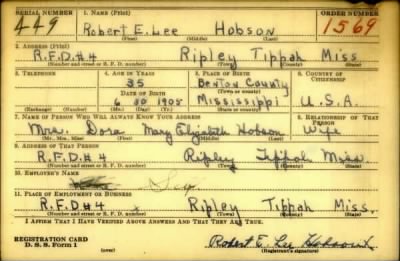 SERIAL NUMBER 1. NAME (Print) ORDER NUMBER
449 Robert E. Lee Hobson 1569
(First) (Middle) (Last)
2. ADDRESS (Print)
R.F.D.#4 Ripley Tippah Miss
(Number and street or R. F. D. number) (Town) (County) (State)
3. TELEPHONE 4. AGE IN YEARS 5. PLACE OF BIRTH 6. COUNTRY OF CITIZENSHIP
35 Benton County
DATE OF BIRTH (Town or county)
6 30 1905 Mississippi U.S.A.
(Exchange) (Number) (Mo.) (Day) (Yr.) (State or country)
7. NAME OF PERSON WHO WILL ALWAYS KNOW YOUR ADDRESS 8. RELATIONSHIP OF THAT PERSON
Mrs. Dora Mary Elizabeth Hobson Wife
(Mr., Mrs., Miss) (First) (Middle) (Last)
9. ADDRESS OF THAT PERSON
R.F.D.#4 Ripley Tippah Miss
(Number and street or R. F. D. number) (Town) (County) (State)
10. EMPLOYER'S NAME
11. PLACE OF EMPLOYMENT OR BUSINESS
R.F.D.#4 x Ripley Tippah Miss.
(Number and street or R. F. D. number) (Town) (County) (State)
I AFFIRM THAT I HAVE VERIFIED ABOVE ANSWERS AND THAT THEY ARE TRUE.
REGISTRATION CARD
D. S. S. Form 1 Robert E. Lee
(Registrant's signature)